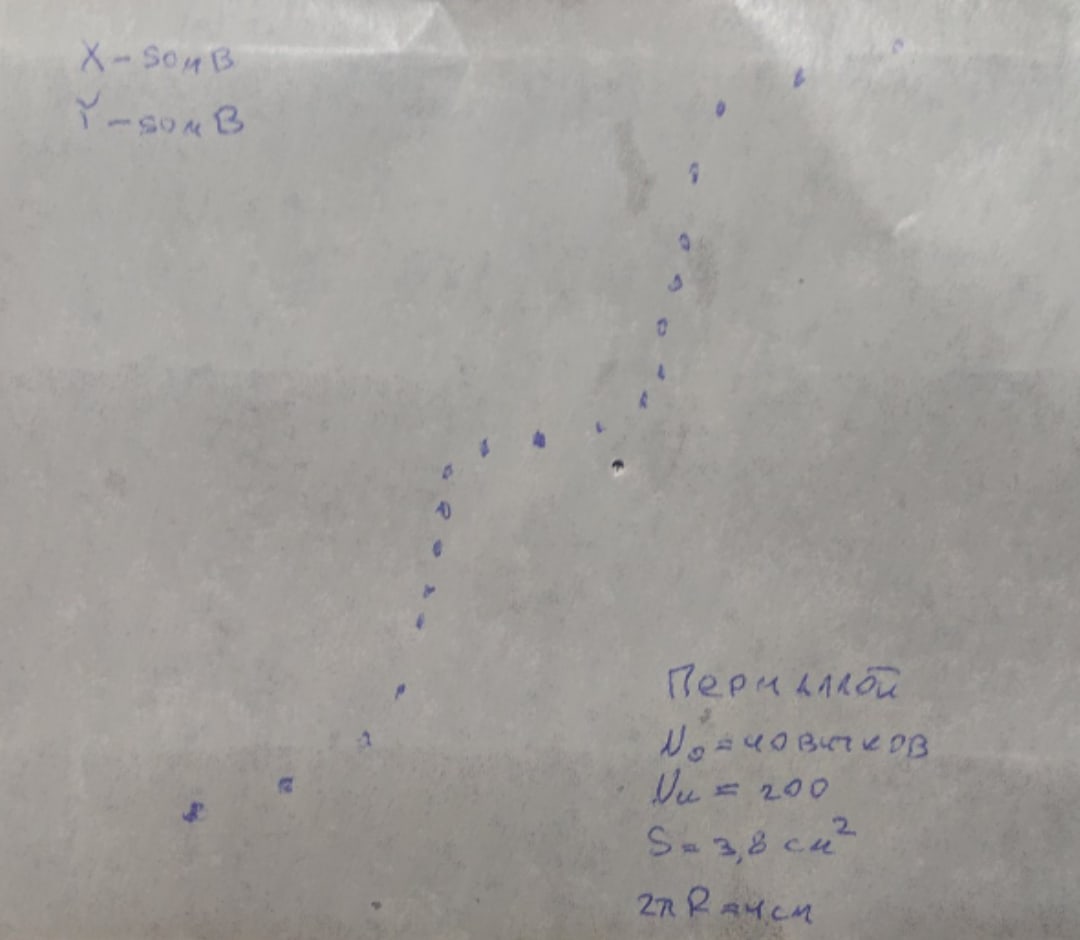 X - 50 мВ
Y - 50 мВ
Пермаллой
N₀ = 40 витков
Nи = 200
S = 3,8 см²
2πR = 4 см